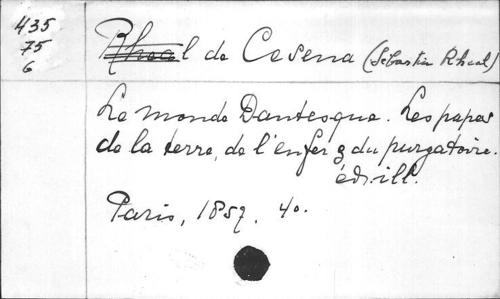 435
75
6
Rhéal de Cesena (Sébastien Rhéal)
Le monde Dantesque. Les papes
de la terre, de l'enfer & du purgatoire.
éd. ill.
Paris, 1857. 4o.